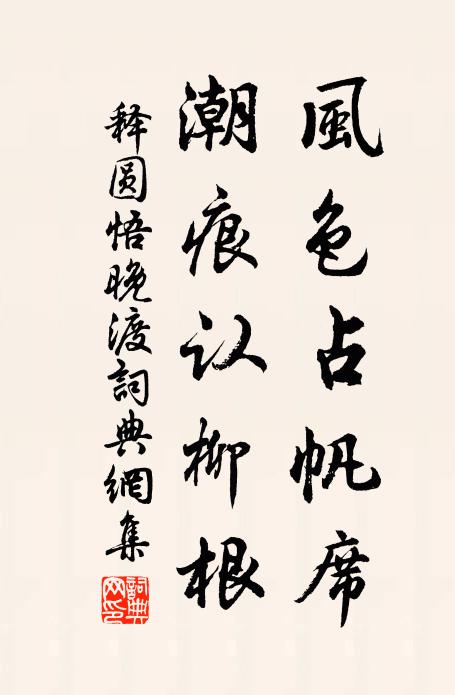 風色占帆席
潮痕认柳根
释圆悟晚渡詞典網集
詞典网印